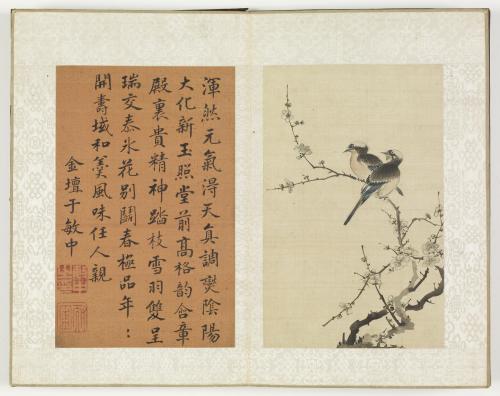 渾然元氣淂天真調爕陰陽
大化新玉照堂前高格韵含章
殿裏貴精神踏枝雪羽雙呈
瑞交泰氷花別闢春極品年〻
開壽域和羹風味任人親
金壇于敏中